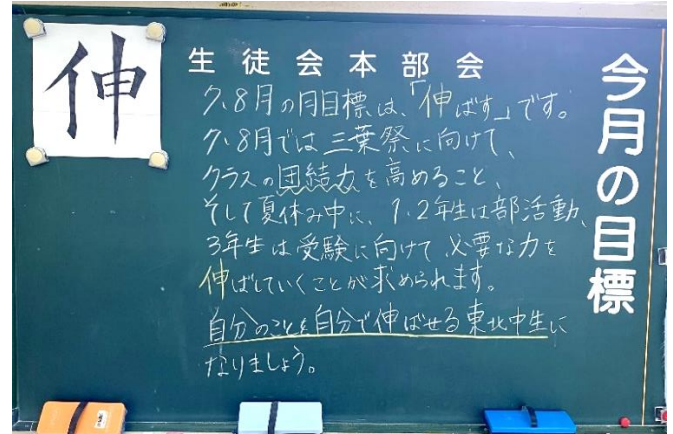 今月の目標
伸
生徒会本部会
7、8月の月目標は、「伸ばす」です。
7、8月では三葉祭に向けて、
クラスの団結力を高めること、
そして夏休み中に、1、2年生は部活動、
3年生は受験に向けて必要な力を
伸ばしていくことが求められます。
自分のことを自分で伸ばせる東北中生に
なりましょう。